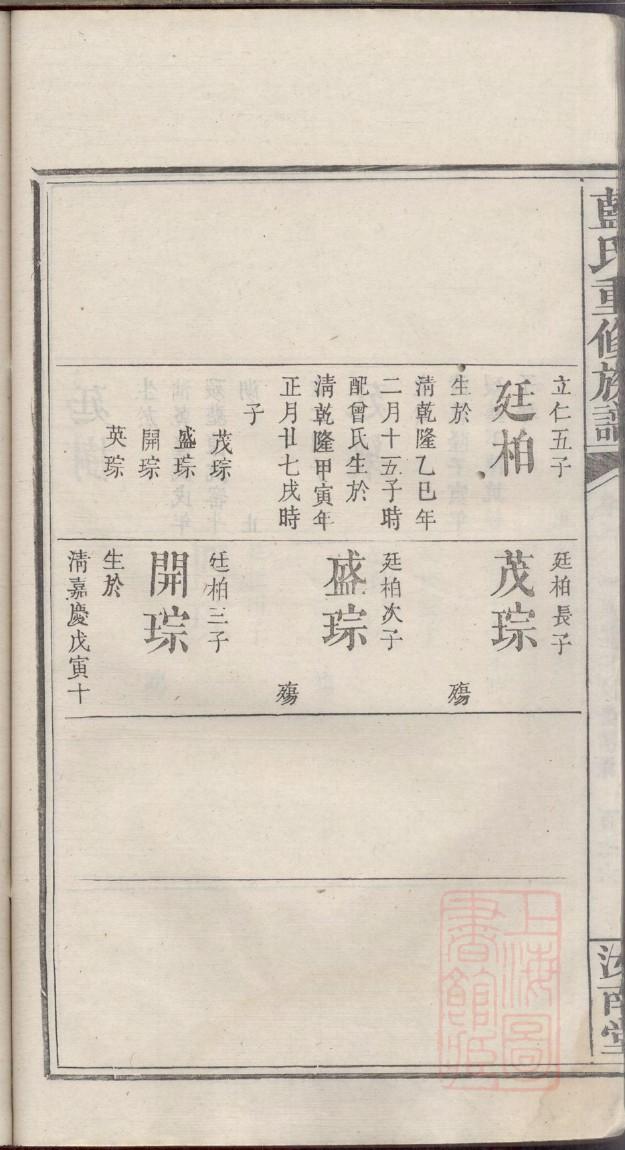 藍氏重修族譜
汝南堂
立仁五子
廷柏
生於
清乾隆乙巳年
二月十五子時
配曾氏生於
清乾隆甲寅年
正月廿七戌時
子
茂琮
盛琮
開琮
英琮
廷柏長子
茂琮
殤
廷柏次子
盛琮
殤
廷柏三子
開琮
生於
清嘉慶戊寅十
上海圖
書館藏